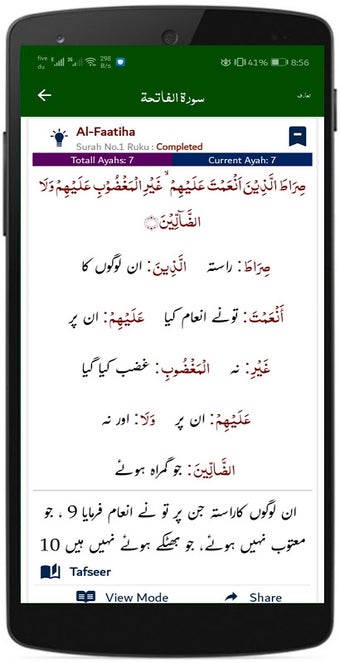 five
du
298
B/s
41%
8:56
سورۃ الفاتحۃ
تعارف
Al-Faatiha
Surah No.1 Ruku : Completed
Totall Ayahs: 7 Current Ayah: 7
صِرَاطَ الَّذِيْنَ اَنْعَمْتَ عَلَيْهِمْ ۙ غَيْرِ الْمَغْضُوْبِ عَلَيْهِمْ وَلَا
الضَّآلِّيْنَ
صِرَاطَ: راستہ الَّذِينَ: ان لوگوں کا
أَنْعَمْتَ: تونے انعام کیا عَلَيْهِمْ: ان پر
غَيْرِ: نہ الْمَغْضُوبِ: غضب کیا گیا
عَلَيْهِمْ: ان پر وَلَا: اور نہ
الضَّالِّينَ: جو گمراہ ہوئے
ان لوگوں کاراستہ جن پر تو نے انعام فرمایا 9 ، جو
معتوب نہیں ہوئے، جو بھٹکے ہوئے نہیں ہیں 10
Tafseer
View Mode Share